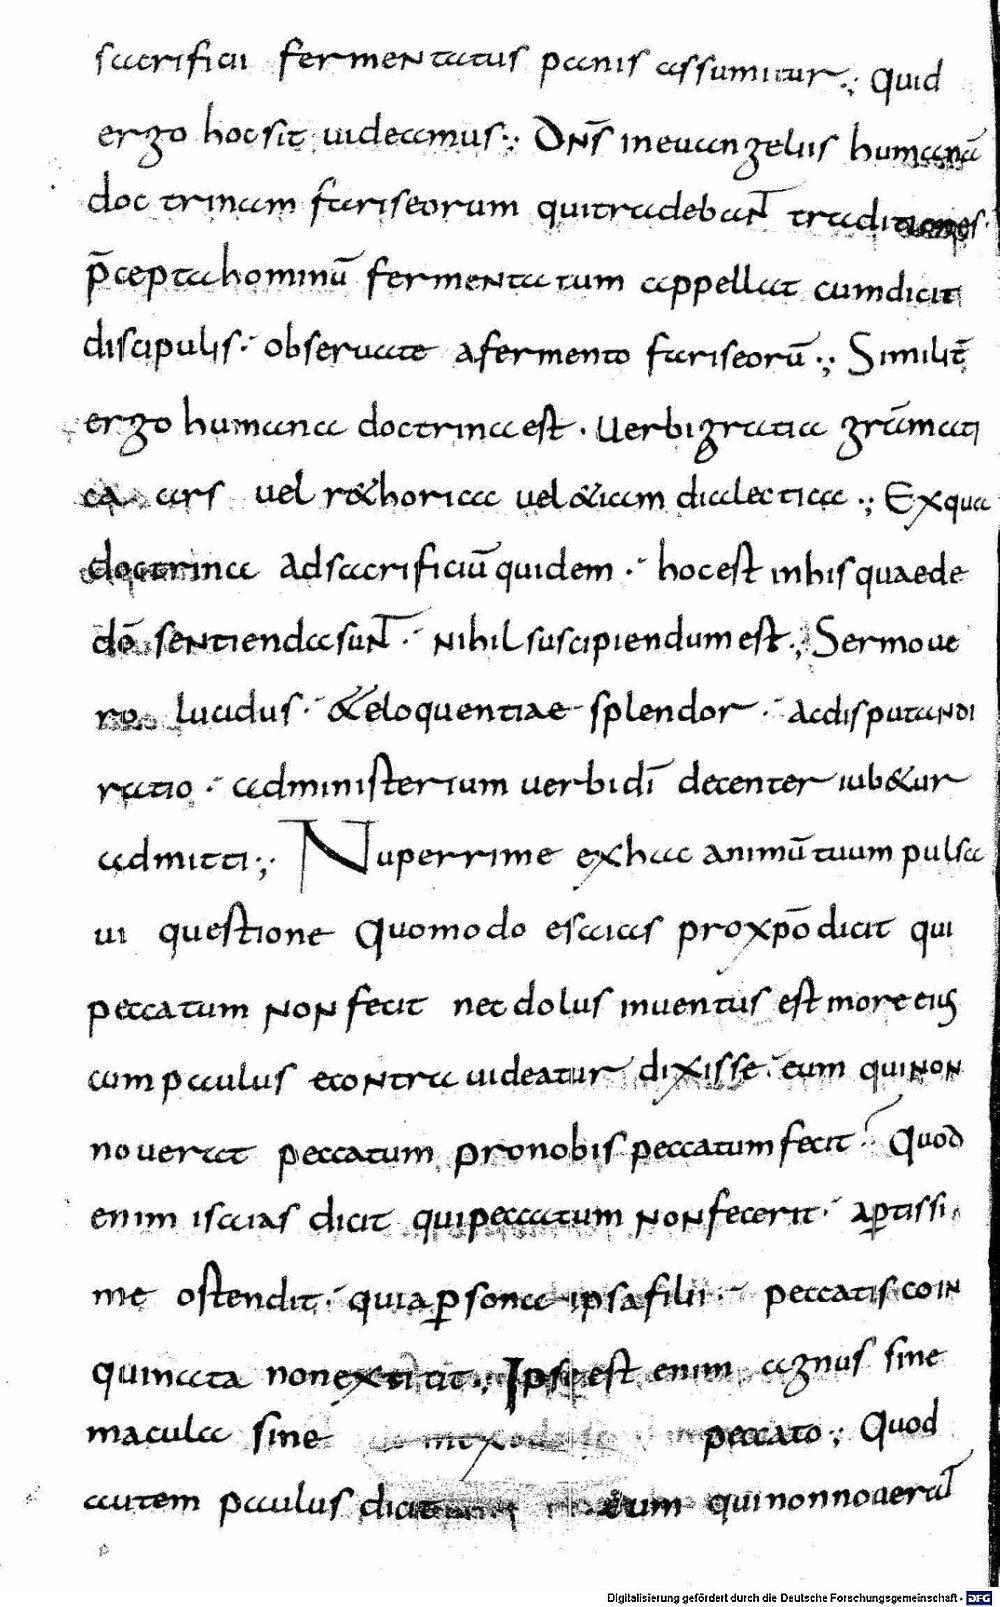 sacrificii fermentatus panis assumitur·; Quid
ergo hoc sit uideamus·; Dn̄s ineuangeliis humanā
doctrinam fariseorum quitradebant traditiones·
p̄ceptahominū fermentatum appellat cumdicit
discipulis·´ obseruate afermento fariseorū·; Similit̄
ergo humana doctrinaest· Uerbigratia grāmati
ca ars uel r&horica uel&iam dialectica·; Exqua
doctrina adsacrificiū quidem·´ hocest inhis quaede
dō sentiendasunt·´ nihil suscipiendum est·; Sermoue
ro lucidus·´ &eloquentiae splendor·´ acdisputandi
ratio·´ administerium uerbidī decenter iub&ur
admitti·; Nuperrime exhac animū tuum pulsa
ui questione Quomodo esaias proxpō dicit qui
peccatum non fecit nec dolus inuentus est inore eius
cum paulus econtra uideatur dixisse·´ eum quinon
nouerat peccatum pronobis peccatum fecit·´ Quod
enim isaias dicit quipeccatum nonfecerit·´ aptissi
me ostendit·´ quia psona ipsa filii·´ peccatis coin
quinata nonextitit·; Ipse est enim agnus sine
macula sine peccato·; Quod
autem paulus dicit eum quinonnouerat
Digitalisierung gefördert durch die Deutsche Forschungsgemeinschaft - DFG